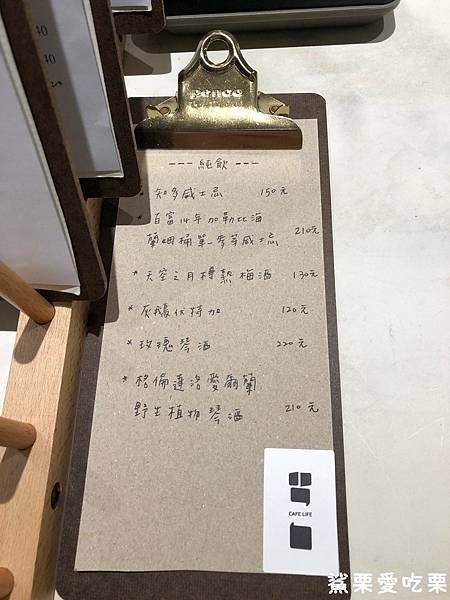 40
40
--- 純飲 ---
* 知多威士忌 150元
* 百富14年加勒比海
蘭姆桶單一麥芽威士忌 210元
* 天空之月樽熟梅酒 130元
* 灰鵝伏特加 120元
* 玫瑰琴酒 220元
* 格倫達洛愛爾蘭
野生植物琴酒 210元
CAFE LIFE
鯊栗愛吃栗